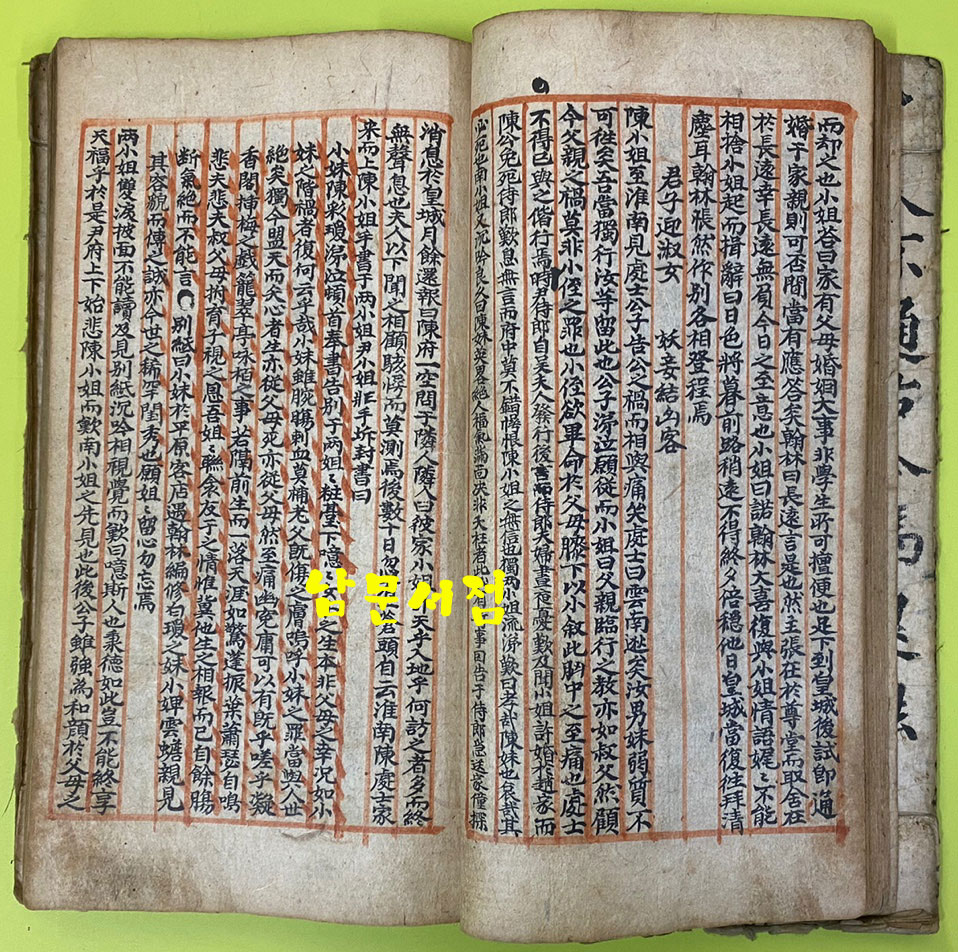 而却之也小姐答曰家有父母婚姻大事非學生所可擅便也足下到皇城後試郎通
婚于家親則可否間當有應答矣翰林曰長遠言是也然主張在於尊堂而取舍在
於長遠幸長遠無負今日之至意也小姐曰諾翰林大喜復與小姐情語娓〻不能
相捨小姐起而揖辭曰日色將暮前路稍遠不得終夕倍穩他日皇城當復往拜清
塵耳翰林悵然作別各相登程焉
君子迎淑女 妖妾結凶客
陳小姐至淮南見處士公子告公之禍而相與痛哭處士曰雲南逖矣汝男妹弱質不
可徃矣吾當獨行汝等留此也公子涕泣願從而小姐曰父親臨行之敎亦如叔父然顧
今父親之禍莫非小侄之罪也小侄欲畢命於父母膝下以小敘此胸中之至痛也處士
不得已與之偕行焉時尹侍郎自吳夫人發行後言而侍郎夫婦晝夜憂歎及聞小姐許婚於趙家而
陳公免死侍郎歎息無言而府中莫不錯愕恨陳小姐之無信也獨兩小姐流涕歎曰孝哉陳妹也哀哉其
必死也南小姐又沉吟良久曰陳妹英畧絶人福氣滿面決非夭枉者此必有事因告于侍郎急送家僮探
消息於皇城月餘還報曰陳府一空問于隣人隣人曰彼家小姐天乎地乎何訪之者多而終
無聲息也夫人以下聞之相顧駭愕而莫測焉後數十日忽一蒼頭自云淮南陳處士家
來而上陳小姐手書于兩小姐尹小姐忙手坼封書曰
小妹陳彩瓊涕泣頓首奉書告別于兩姐〻粧臺下噫〻父母之生本非父母之幸況如小
妹之階禍者復何云乎哉小妹雖腕觴刺血莫補老父旣傷之膚嗚呼小妹之罪當與人世
絶矣獨今盟天而矢心者生亦從父母死亦從父母然至痛幽寃庸可以有旣乎嗟乎凝
香閣揷梅之戱籠翠亭咏栢之事若隔前生而一落天涯如驚蓬振葉蕭瑟自鳴
悲夫悲夫叔父母拊育子視之恩吾姐〻聯衾友于之情惟冀他生之相報而已自餘腸
斷氣絶而不能言 別紙曰小妹於平原客店遇翰林編修白瓊之妹小婢雲蟾親見
其容貌而傳之誠亦今世之稀罕閨秀也願姐〻留心勿忘焉
兩小姐雙淚被面不能讀及見別紙沉吟相視覺而歎曰噫斯人也秉德如此豈不能終享
天福乎於是尹府上下始悲陳小姐而歎南小姐之先見也此後公子雖強爲和顔於父母之
남문서점